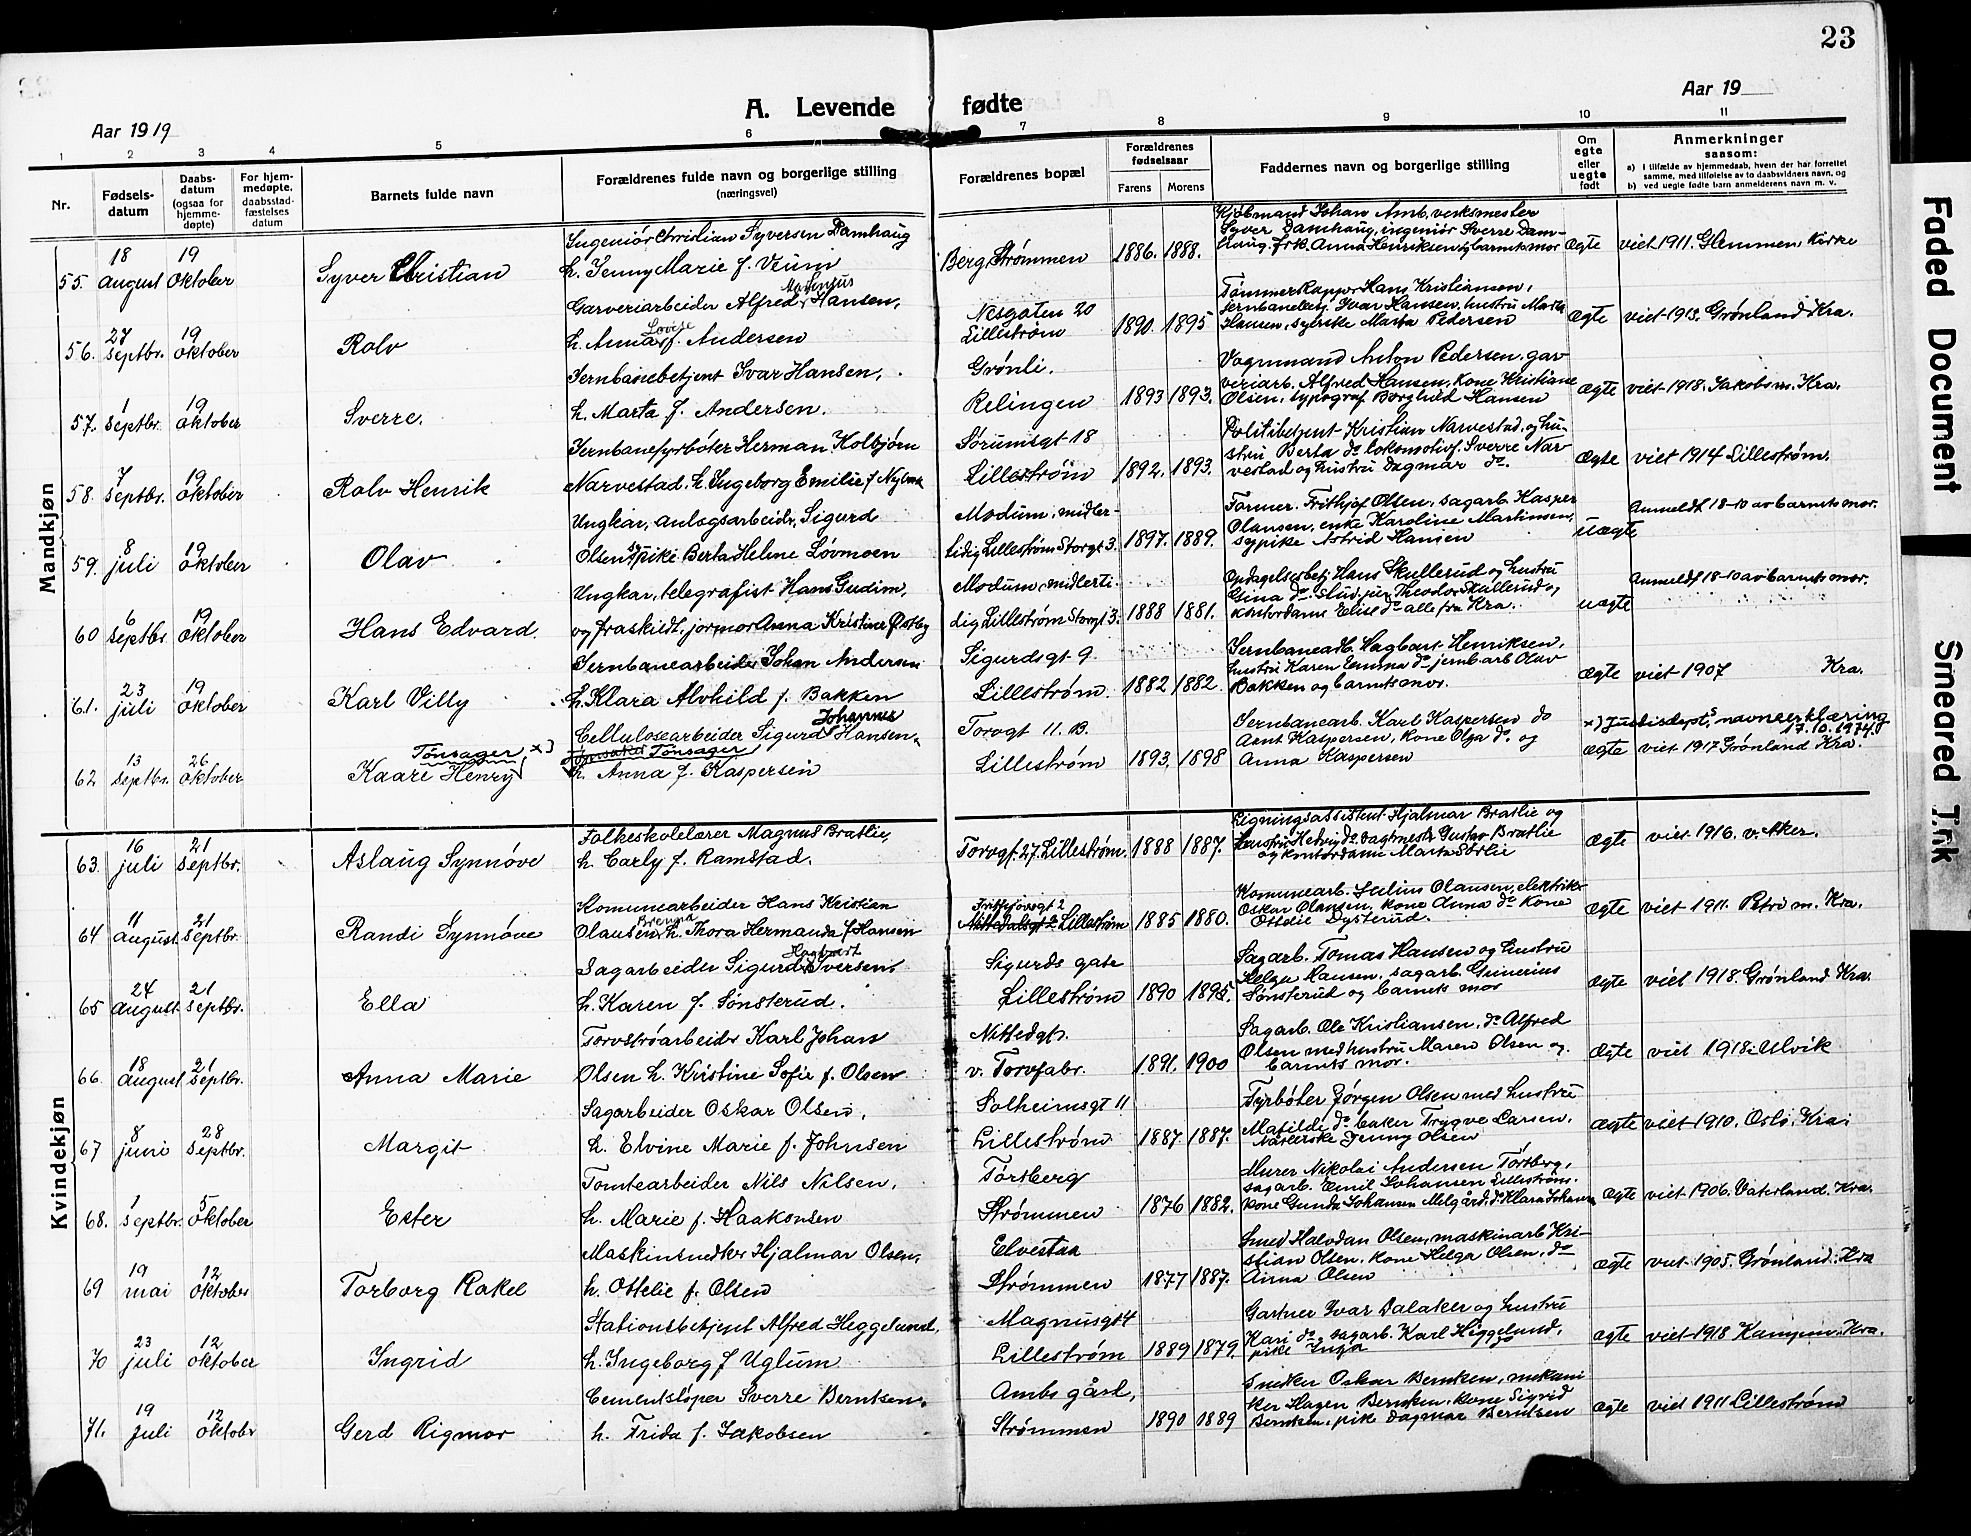 23
Aar 1919
A. Levende fødte
Aar 19
1 2 3 4 5 6 7 8 9 10 11
Nr.
Fødsels-
datum
Daabs-
datum
(ogsaa for
hjemme-
døpte)
For hjem-
medøpte.
daabsstad-
fæstelses
datum
Barnets fulde navn
Forældrenes fulde navn og borgerlige stilling
(næringsvei)
Forældrenes bopæl
Forældrenes
fødselsaar
Farens Morens
Faddernes navn og borgerlige stilling
Om
egte
eller
uegte
født
Anmerkninger
saasom:
a) I tilfælde av hjemmedaab, hvem der har forrettet
samme, med tilføielse av to daabsvidners navn, og
b) ved uegte fødte barn anmelderens navn m. v.
Mandkjøn
55. 18 august 19 oktober
Syver Christian
Ingeniør Christian Syversen Damhaug
h. Jenny Marie f. Veum
Berg Strømmen 1886. 1888.
Kjøbmand Johan Amb, verksmester
Syver Damhaug, ingeniør Sverre Dam-
haug. frk. Anna Henriksen og barnets mor
egte viet 1911. Glemmen Kirke
56. 27 septbr. 19 oktober
Rolv
Garveriarbeider Alfred Marensius Hansen,
h. Anna Lovise f. Andersen
Nesgaten 20
Lillestrøm 1890. 1895
Hans Kristiansen,
Jernbanebetj. Ivar Hansen, hustru Marta
Hansen, syerske Marta Pedersen
egte viet 1915. Grønland Kra.
57. 1 septbr. 19 oktober
Sverre.
Jernbanebetjent Ivar Hansen,
h. Marta f. Andersen.
Grønli.
Relingen 1893 1893.
Vognmand Anton Pedersen. gar
veriarb. Alfred Hansen, kone Kristiane
Olsen, typograf Borghild Hansen
egte viet 1918. Jakobs m. Kra.
58. 7 septbr. 19 oktober
Rolv Henrik
Jernbanefyrbøter Herman Kolbjørn
Narvestad. h. Ingeborg Emilie f
Sørumsgt 18
Lillestrøm 1892. 1893.
Politibetjent Kristian Narvestad og hu-
stru Berta do lokomotivf. Sverre Nar
vestad og hustru Dagmar do.
egte viet 1914 Lillestrøm.
59. 8 juli 19 oktober
Olav
Ungkar, anlægsarbeider, Sigurd
Olsen og pike Berta Helene Løvmoen
Modum, midler-
tidig Lillestrøm Storgt 3. 1897. 1889.
Former. Frithjof Olsen, sagarb. Kasper
Olausen, enke Karoline Martinsen,
sypike Astrid Hansen
uegte Anmeldt 18-10 av barnets mor.
60 6 septbr. 19 oktober
Hans Edvard
Ungkar, telegrafist Hans Gudim,
og fraskildt, jormor Anna Kristine Østby
Modum, midlerti-
dig Lillestrøm Storgt 3. 1888 1881.
Opdagelsesbetj. Hans Skullerud og hustru
Gina do. stud. jur. Theodor Skullerud,
kontordame Elise do alle fra Kra.
uegte Anmeldt 18-10 av barnets mor.
61. 23 juli 19 oktober
Karl Villy
Jernbanearbeider Johan Andersen
h. Klara Alvhild f. Bakken
Sigurdsgt 9.
Lillestrøm. 1882 1882
Jernbanearb. Hagbart Henriksen,
hustru Karen Emma do jernb arb Olav
Bakken og barnets mor.
egte viet 1907 Kra.
62 13 septbr. 26 oktober
Tønsager x)
Kaare Henry
Cellulosearbeider Sigurd Johannes Hansen
Tønsager
h. Anna f. Kaspersen
Torvgt 11. B.
Lillestrøm 1893. 1898
Jernbanearb. Karl Kaspersen do
Arnt Kaspersen, kone Olga do og
Anna Kaspersen
x) Justisdept.s navneerklæring
17.10.1974
egte viet 1917 Grønland Kra.
Kvindekjøn
63. 16 juli 21 septbr.
Aslaug Synnøve
Folkeskolelærer Magnus Bratlie,
h. Carly f. Ramstad.
Torvgt. 27. Lillestrøm. 1888 1887.
Ligningsassistent Hjalmar Bratlie og
hustru Hedvig do. Gustav Bratlie
og kontordame Marta Sørlie
egte viet 1916. v. Aker.
64 11 august. 21 septbr.
Randi Synnøve
Komunearbeider Hans Kristian
Olausen Brenna h. Thora Hermanda f. Hansen
Frithjofsgt 2
Nittedalsgt 2 Lillestrøm 1885 1880.
Komunearb. Julius Olausen, elektriker
Oskar Olausen, kone Anna do Kone
Ottelie Dysterud.
egte viet 1911. Petri m. Kra.
65 24 august. 21 septbr.
Ella
Sagarbeider Sigurd Hagbart Iversen.
h. Karen f. Sønsterud.
Sigurds gate
Lillestrøm 1890 1895.
Sagarb. Tomas Hansen og hustru
Helga Hansen. sagarb. Grinerius
Sønsterud og barnets mor
egte viet 1918. Grønland Kra.
66. 18 august 21 septbr.
Anna Marie
Torvstrøarbeider Karl Johan
Olsen h. Kristine Sofie f. Olsen
Nittedgt.
v. Torvfabr. 1891. 1900
Sagarb. Ole Kristiansen. do Alfred
Olsen med hustru Maren Olsen og
barnets mor.
egte viet 1918. Ulvik
67 8 juni 28 septbr.
Margit
Sagarbeider Oskar Olsen,
h. Elvine Marie f. Johnsen
Solheimsgt 11
Lillestrøm 1887. 1887.
Fyrbøter Jørgen Olsen med hustru
Matilde do. baker Trygve Larsen.
Jenny Olsen
egte viet 1910. Oslo. Kra.
68. 1 septbr. 5 oktober
Ester
Tomtearbeider Nils Nilsen,
h. Marie f. Haakonsen
Tørtberg
Strømmen 1876 1882.
Murer Nikolai Andersen Tørtberg,
sagarb. Emil Johansen Lillestrøm.
kone Gunda Johansen Melgård, do Klara Johansen
egte viet 1906. Vaterland. Kra.
69 19 mai 12 oktober
Torborg Rakel
Maskinsnedker Hjalmar Olsen,
h. Ottelie f. Olsen
Elvestaa
Strømmen 1877 1887.
Smed Halvdan Olsen, maskinarb Kri-
stian Olsen, kone Helga Olsen, do
Anna Olsen
egte viet 1905. Grønland. Kra
70 23 juli 12 oktober
Ingrid
Stationsbetjent Alfred Heggelund,
h. Ingeborg f Uglum
Magnusgt 4
Lillestrøm 1889 1879.
Gartner Ivar Dalaker og hustru
Kari do, sagarb. Karl Heggelund,
pike Inga
egte viet 1918 Kampen. Kra.
71. 19 juli 12 oktobr
Gerd Rigmor
Cementstøper Sverre Berntsen,
h. Frida f. Jakobsen
Ambs gård,
Strømmen 1890 1889
Snedker Oskar Berntsen, mekani
ker Hagen Berntsen, kone Sigrid
Berntsen, pike Dagmar Berntsen
egte viet 1911 Lillestrøm
Faded Document
Smeared Ink